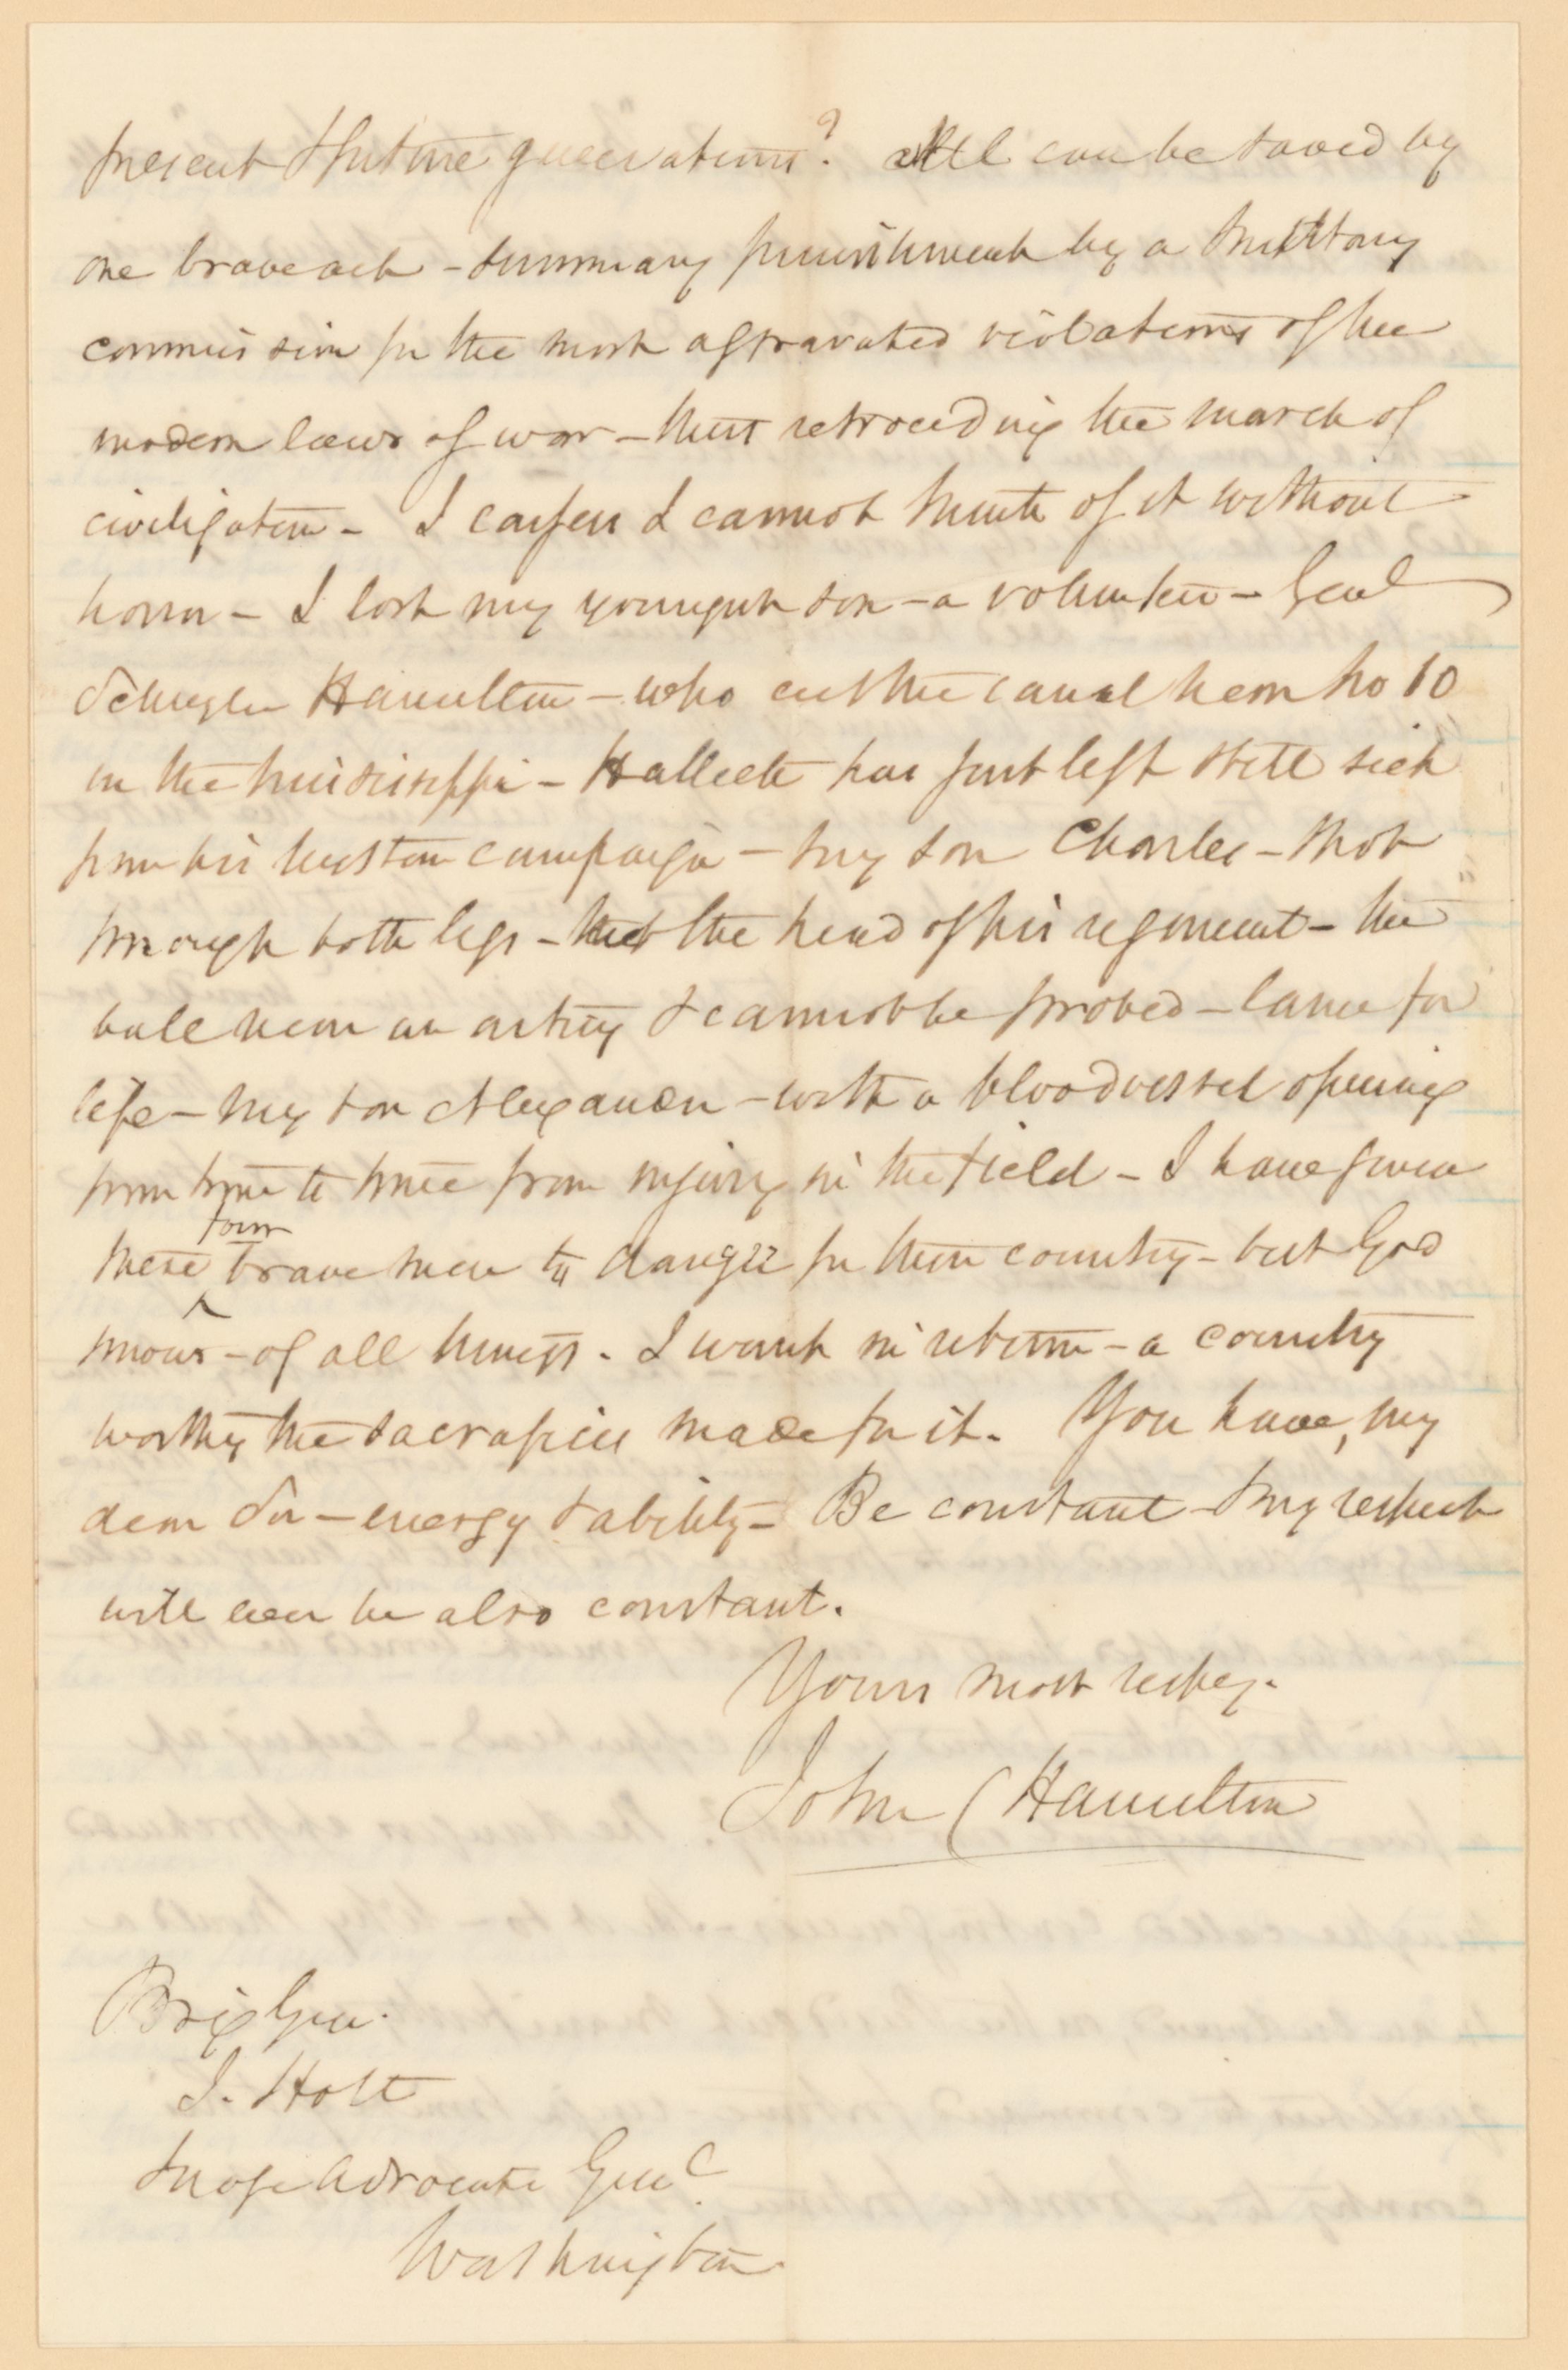 present & future generations? All can be saved by
one brave act – summary punishment by a military
commission for the most aggravated violations of the
modern laws of war – thus retroceding the march of
civilization – I confess I cannot think of it without
horror – I lost my youngest son – a volunteer – Genl
Schuyler Hamilton – who cut the canal near No 10
in the Mississippi – Halleck has just left still sick
from his western campaign – my son Charles – shot
through both legs – the head of his regiment – the
ball near an artery & cannot be probed – lame for
life – my son Alexander – with a bloodvessel opening
from time to time from injury in the field – I have given
these four brave men to danger for their country – but God
knows – of all things. I want in return – a country
worthy the sacrifices made for it. You have, my
dear Sir – energy & ability – Be constant – my respect
will ever be also constant.
Yours most respey.
John C Hamilton
Brig Gen.
J. Holt
Judge Advocate Genl
Washington.